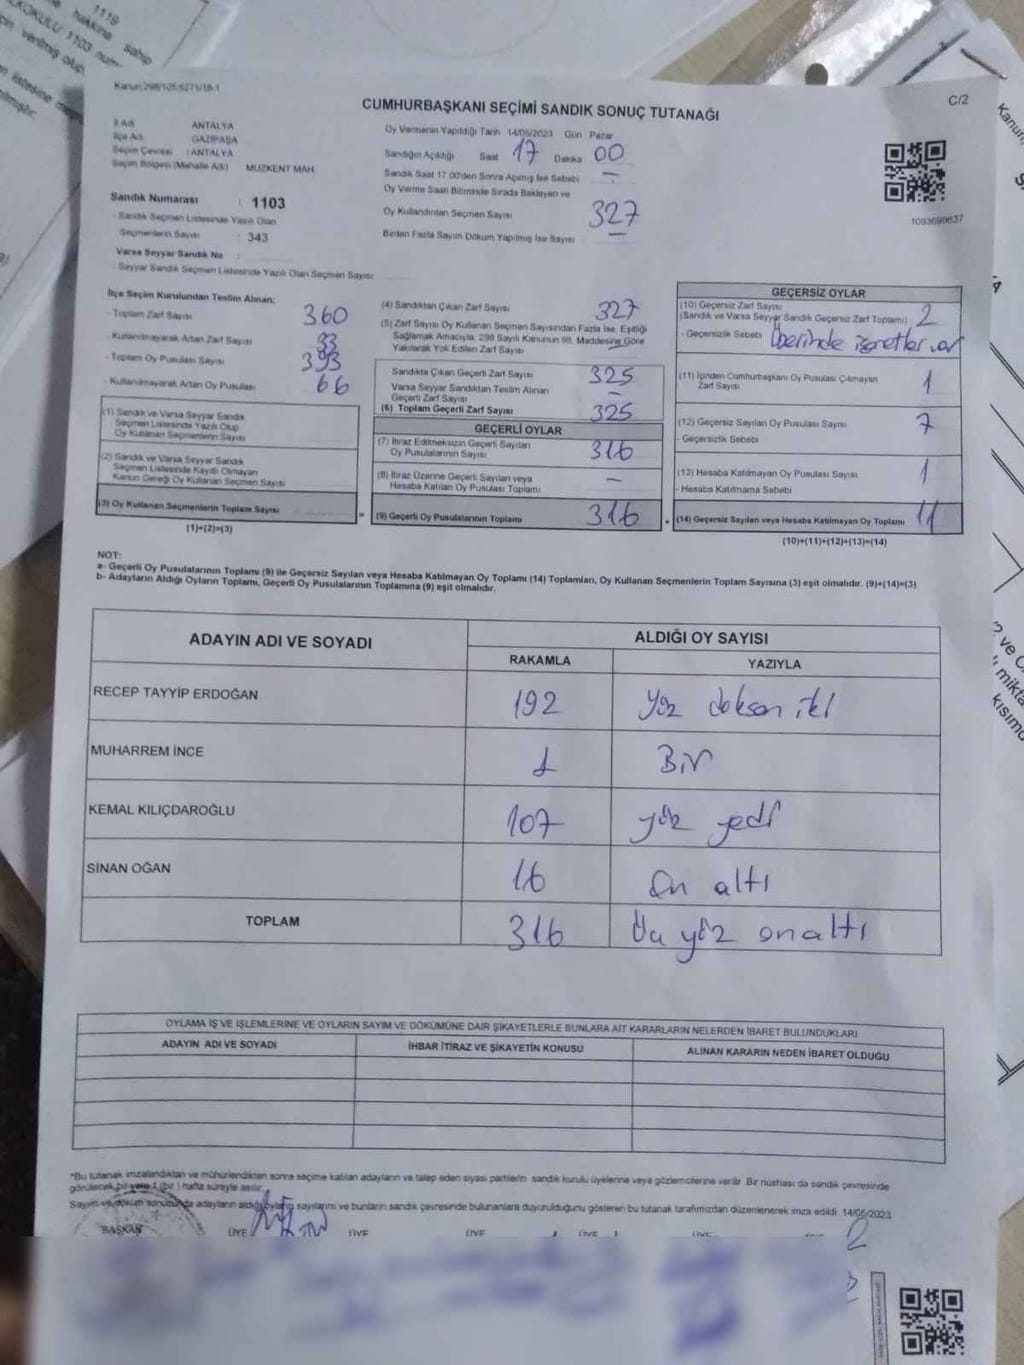 1119
hakkına sahip
OKULU 1103 num
verilmiş olup,
listesine
Kanun:298/105:6271/18-1
C/2
CUMHURBAŞKANI SEÇİMİ SANDIK SONUÇ TUTANAĞI
İl Adı ANTALYA
İlçe Adı GAZİPAŞA
Seçim Çevresi : ANTALYA
Seçim Bölgesi (Mahalle Adı) MUZKENT MAH.
Sandık Numarası : 1103
- Sandık Seçmen Listesinde Yazılı Olan
Seçmenlerin Sayısı : 343
Varsa Seyyar Sandık No :
- Seyyar Sandık Seçmen Listesinde Yazılı Olan Seçmen Sayısı:
Oy Vermenin Yapıldığı Tarih 14/05/2023 Gün Pazar
Sandığın Açıldığı Saat 17 Dakika 00
Sandık Saat 17.00'den Sonra Açılmış İse Sebebi —
Oy Verme Saati Bitiminde Sırada Bekleyen ve
Oy Kullandırılan Seçmen Sayısı 327
Birden Fazla Sayım Döküm Yapılmış İse Sayısı —
1093690637
İlçe Seçim Kurulundan Teslim Alınan;
- Toplam Zarf Sayısı 360
- Kullanılmayarak Artan Zarf Sayısı 33
- Toplam Oy Pusulası Sayısı 393
- Kullanılmayarak Artan Oy Pusulası 66
(1) Sandık ve Varsa Seyyar Sandık
Seçmen Listesinde Yazılı Olup
Oy Kullanan Seçmenlerin Sayısı
(2) Sandık ve Varsa Seyyar Sandık
Seçmen Listesinde Kayıtlı Olmayan
Kanun Gereği Oy Kullanan Seçmen Sayısı
(3) Oy Kullanan Seçmenlerin Toplam Sayısı =
(1)+(2)=(3)
(4) Sandıktan Çıkan Zarf Sayısı 327
(5) Zarf Sayısı Oy Kullanan Seçmen Sayısından Fazla İse, Eşitliği
Sağlamak Amacıyla, 298 Sayılı Kanunun 98. Maddesine Göre
Yakılarak Yok Edilen Zarf Sayısı —
Sandıkta Çıkan Geçerli Zarf Sayısı 325
Varsa Seyyar Sandıktan Teslim Alınan
Geçerli Zarf Sayısı —
(6) Toplam Geçerli Zarf Sayısı 325
GEÇERLİ OYLAR
(7) İtiraz Edilmeksizin Geçerli Sayılan
Oy Pusulalarının Sayısı 316
(8) İtiraz Üzerine Geçerli Sayılan veya
Hesaba Katılan Oy Pusulası Toplamı —
(9) Geçerli Oy Pusulalarının Toplamı 316 +
GEÇERSİZ OYLAR
(10) Geçersiz Zarf Sayısı
(Sandık ve Varsa Seyyar Sandık Geçersiz Zarf Toplamı) 2
- Geçersizlik Sebebi Üzerinde işaretler var
(11) İçinden Cumhurbaşkanı Oy Pusulası Çıkmayan
Zarf Sayısı 1
(12) Geçersiz Sayılan Oy Pusulası Sayısı 7
- Geçersizlik Sebebi
(13) Hesaba Katılmayan Oy Pusulası Sayısı 1
- Hesaba Katılmama Sebebi
(14) Geçersiz Sayılan veya Hesaba Katılmayan Oy Toplamı 11
(10)+(11)+(12)+(13)=(14)
NOT:
a- Geçerli Oy Pusulalarının Toplamı (9) ile Geçersiz Sayılan veya Hesaba Katılmayan Oy Toplamı (14) Toplamları, Oy Kullanan Seçmenlerin Toplam Sayısına (3) eşit olmalıdır. (9)+(14)=(3)
b- Adayların Aldığı Oyların Toplamı, Geçerli Oy Pusulalarının Toplamına (9) eşit olmalıdır.
ADAYIN ADI VE SOYADI ALDIĞI OY SAYISI
RAKAMLA YAZIYLA
RECEP TAYYİP ERDOĞAN 192 Yüz doksan iki
MUHARREM İNCE 1 Bir
KEMAL KILIÇDAROĞLU 107 yüz yedi
SİNAN OĞAN 16 On altı
TOPLAM 316 yüz onaltı
OYLAMA İŞ VE İŞLEMLERİNE VE OYLARIN SAYIM VE DÖKÜMÜNE DAİR ŞİKAYETLERLE BUNLARA AİT KARARLARIN NELERDEN İBARET BULUNDUKLARI
ADAYIN ADI VE SOYADI İHBAR İTİRAZ VE ŞİKAYETİN KONUSU ALINAN KARARIN NEDEN İBARET OLDUĞU
*Bu tutanak imzalandıktan ve mühürlendikten sonra seçime katılan adayların ve talep eden siyasi partilerin sandık kurulu üyelerine veya gözlemcilerine verilir. Bir nüshası da sandık çevresinde
görülecek bir yere 1 (bir ) hafta süreyle asılır.
Sayım ve döküm sonucunda adayların aldığı oyların sayılarını ve bunların sandık çevresinde bulunanlara duyurulduğunu gösteren bu tutanak tarafımızdan düzenlenerek imza edildi. 14/05/2023
BAŞKAN ÜYE ÜYE ÜYE ÜYE ÜYE
Kanun
2 ve
mikta
kısımd